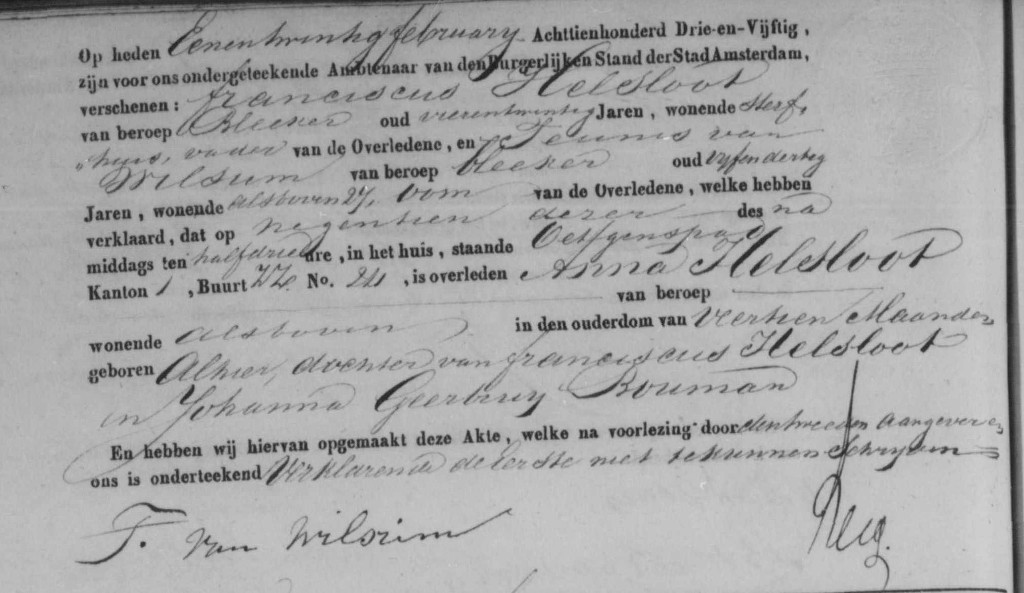 Op heden Eenentwintig february Achttienhonderd Drie-en-Vijftig,
zijn voor ons ondergeteekende Ambtenaar van den Burgerlijken Stand der Stad Amsterdam,
verschenen: franciscus Helsloot
van beroep Bleeker oud vierentwintig Jaren, wonende Sterf,
huis, vader van de Overledene, en Teunis van
Wilsum van beroep bleeker oud vyfendertig
Jaren, wonende alsboven 27, oom van de Overledene, welke hebben
verklaard, dat op negentien dezer des na
middags ten halfdrie ure, in het huis, staande
Kanton 1, Buurt ZZ No. 24, is overleden Anna Helsloot
van beroep
wonende alsboven in den ouderdom van Veertien Maanden
geboren Alhier, dochter van franciscus Helsloot
en Johanna Geertruy Bouman
En hebben wij hiervan opgemaakt deze Akte, welke na voorlezing door den tweeden aangever en
ons is onderteekend Verklarende de eerste niet te kunnen Schryven
T. van Wilsum